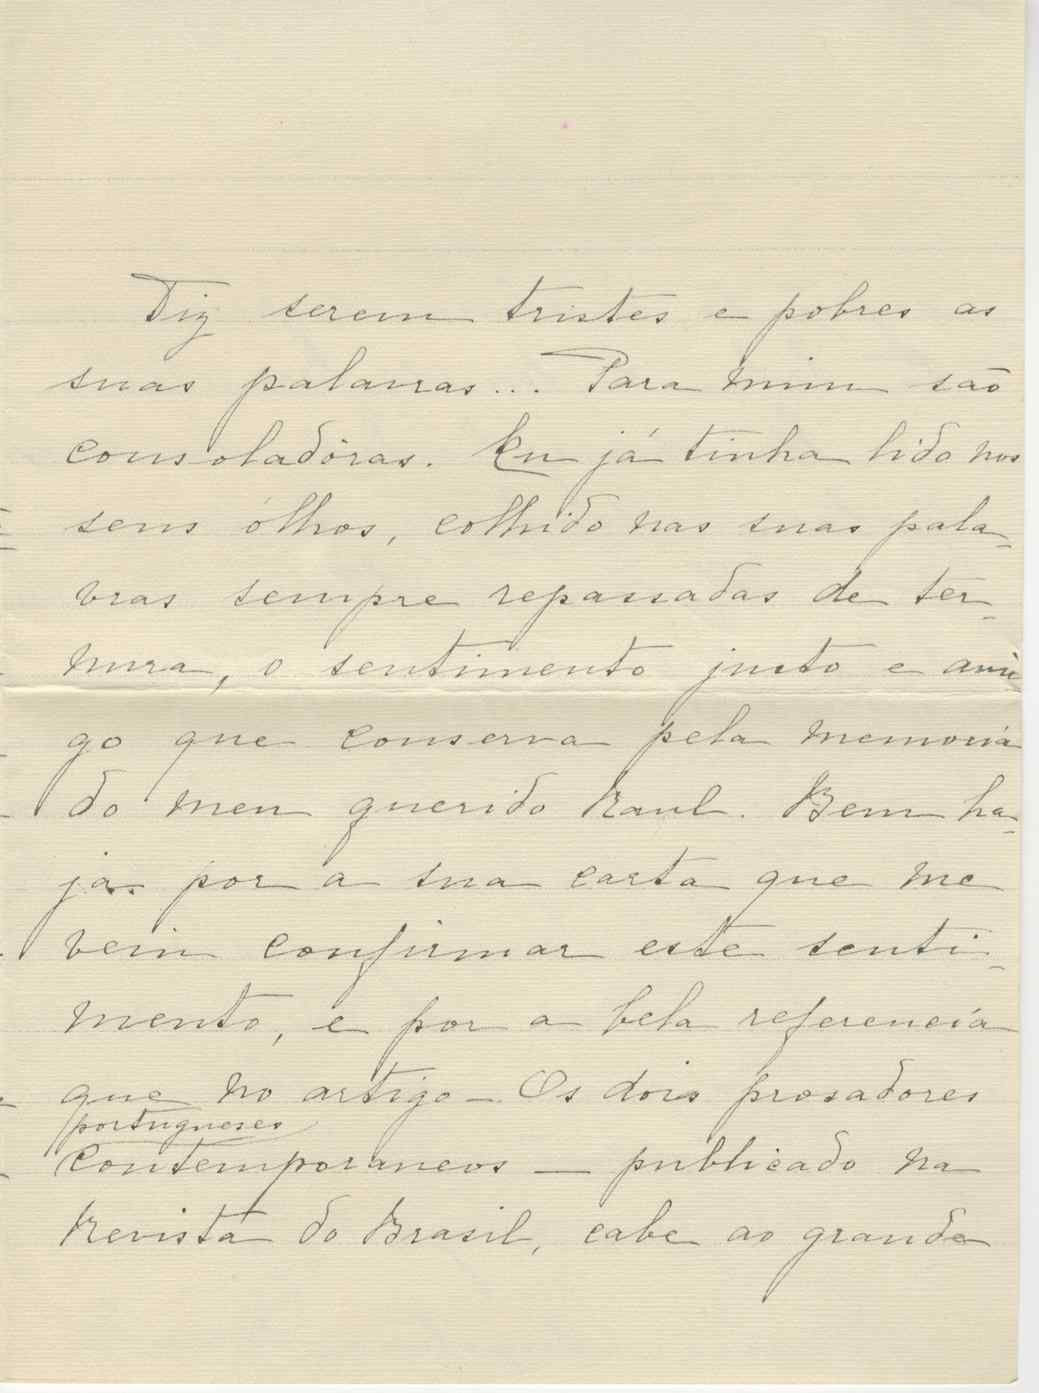 Diz serem tristes e pobres as
suas palavras... Para mim são
consoladôras. Eu já tinha lido nos
seus ólhos, colhido nas suas pala-
vras sempre repassadas de ter-
nura, o sentimento justo e ami
go que conserva pela memoria
do meu querido Raul. Bem ha-
ja por a sua carta que me
vein confirmar este senti-
mento, e por a bela referencia
que no artigo - Os dois prosadores
portugueses
contemporaneos — publicado na
Revista do Brasil, cabe ao grande